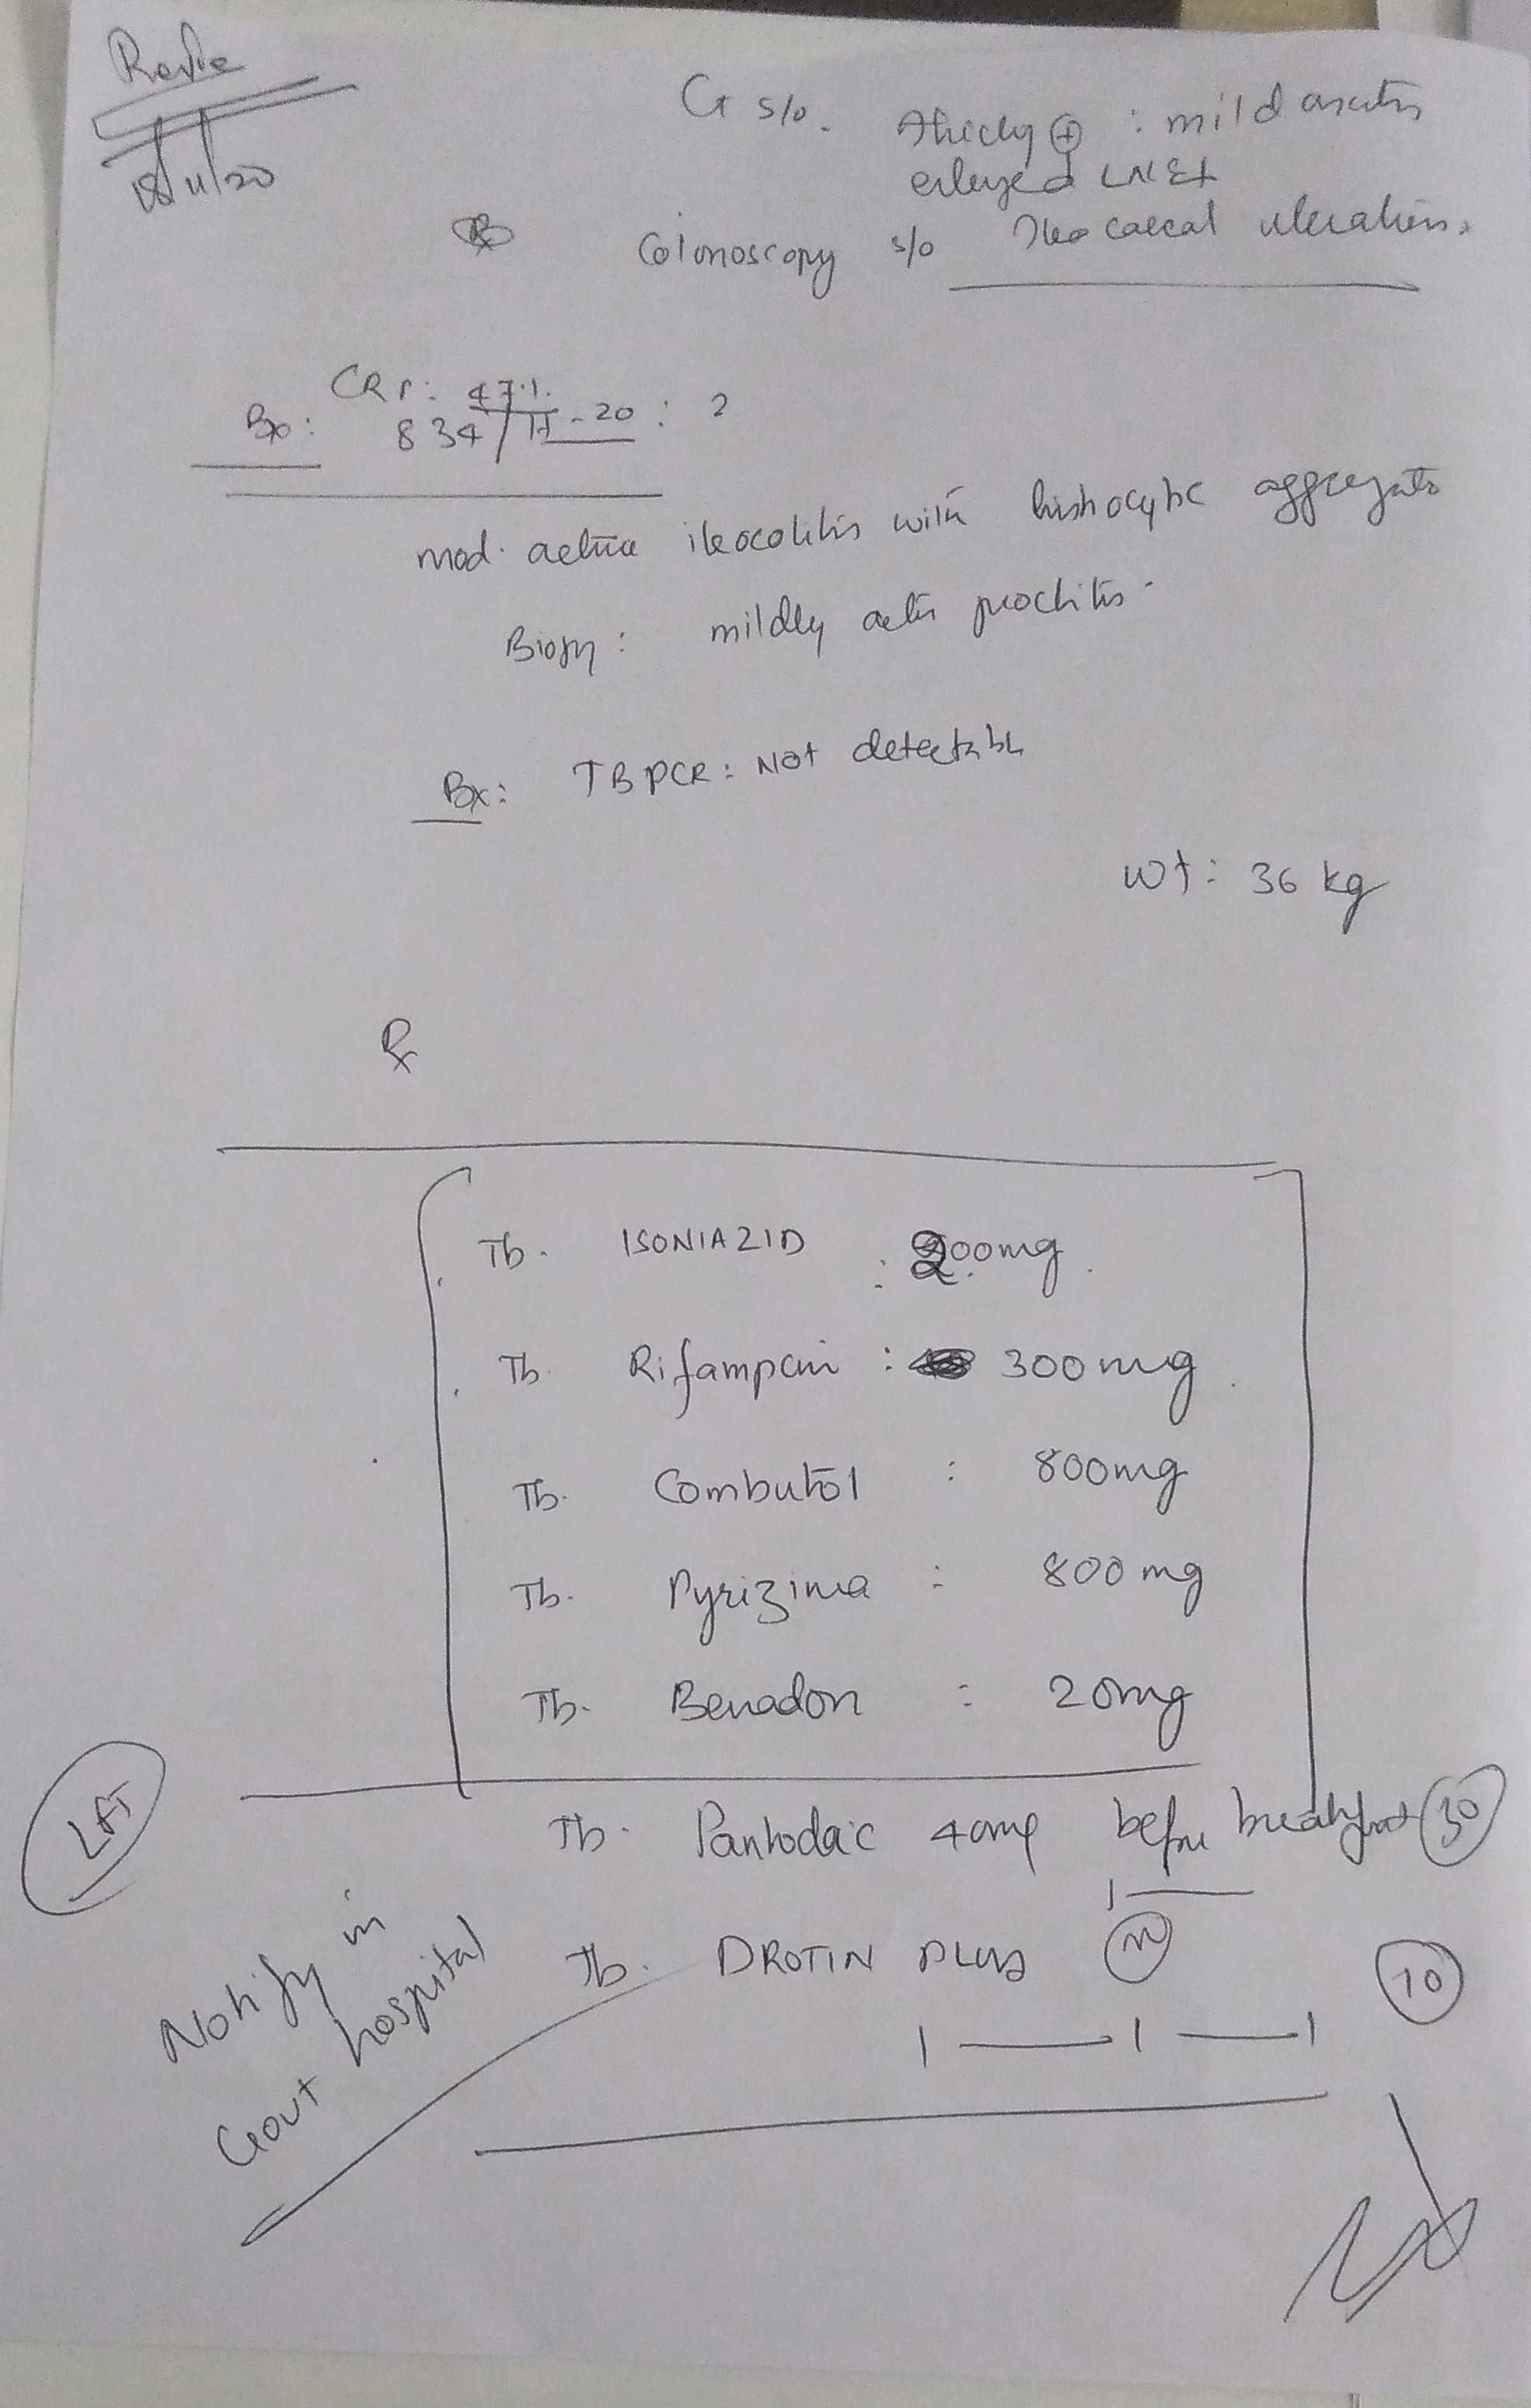 Review
18/11/20
CT s/o. thickg ⊕ : mild ascites
enlarged LN Ex
Colonoscopy s/o Ileocaecal ulcerations.
CRP: 47.1.
Bx: 834/H-20 : 2
mod. active ileocolitis with histiocytic aggregates
Biopsy : mildly active proctitis.
Bx: TB PCR: Not detectable
wt: 36 kg
Rx
Tb. ISONIAZID : 200mg.
Tb. Rifampcin : 300mg.
Tb. Combutol : 800mg
Tb. Pyrizina : 800mg
Tb. Benadon : 20mg
LFT
Tb. Pantodac 40mg before breakfast 30
1 —
Tb. DROTIN PLUS 10
1 — 1 — 1
Notify in
Govt hospital